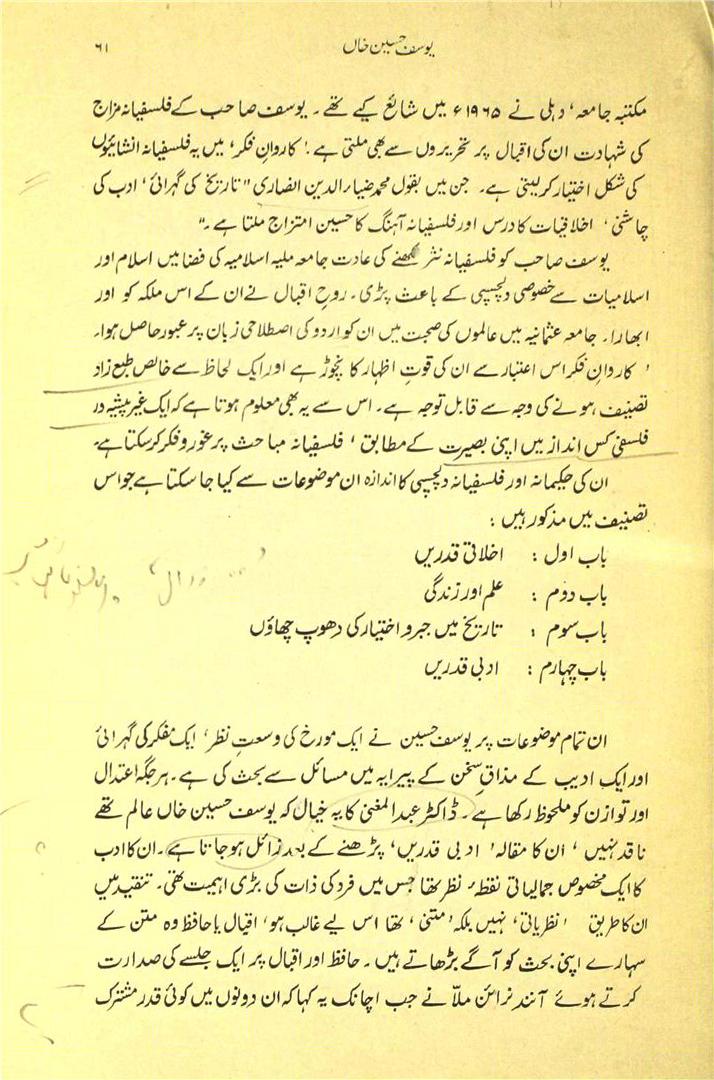 یوسف حسین خاں
۶۱
مکتبہ جامعہ، دہلی نے ۱۹۶۵ء میں شائع کیے تھے۔ یوسف صاحب کے فلسفیانہ مزاج
کی شہادت ان کی اقبال پر تحریروں سے بھی ملتی ہے۔ 'کاروانِ فکر' میں یہ فلسفیانہ انشائیوں
کی شکل اختیار کر لیتی ہے۔ جن میں بقول محمد ضیاء الدین انصاری "تاریخ کی گہرائی، ادب کی
چاشنی، اخلاقیات کا درس اور فلسفیانہ آہنگ کا حسین امتزاج ملتا ہے۔"
یوسف صاحب کو فلسفیانہ نثر لکھنے کی عادت جامعہ ملیہ اسلامیہ کی فضا میں اسلام اور
اسلامیات سے خصوصی دلچسپی کے باعث پڑی۔ روحِ اقبال نے ان کے اس ملکہ کو اور
ابھارا۔ جامعہ عثمانیہ میں عالموں کی صحبت میں ان کو اردو کی اصطلاحی زبان پر عبور حاصل ہوا۔
'کاروانِ فکر اس اعتبار سے ان کی قوتِ اظہار کا نچوڑ ہے اور ایک لحاظ سے خالص طبع زاد
تصنیف ہونے کی وجہ سے قابل توجہ ہے۔ اس سے یہ بھی معلوم ہوتا ہے کہ ایک غیر پیشہ ور
فلسفی کس انداز میں اپنی بصیرت کے مطابق، فلسفیانہ مباحث پر غور و فکر کر سکتا ہے۔
ان کی حکیمانہ اور فلسفیانہ دلچسپی کا اندازہ ان موضوعات سے کیا جا سکتا ہے جو اس
تصنیف میں مذکور ہیں:
باب اول: اخلاقی قدریں
باب دوم: علم اور زندگی
باب سوم: تاریخ میں جبر و اختیار کی دھوپ چھاؤں
باب چہارم: ادبی قدریں
ان تمام موضوعات پر یوسف حسین نے ایک مورخ کی وسعتِ نظر، ایک مفکر کی گہرائی
اور ایک ادیب کے مذاقِ سخن کے پیرایہ میں مسائل سے بحث کی ہے۔ ہر جگہ اعتدال
اور توازن کو ملحوظ رکھا ہے۔ ڈاکٹر عبد المغنی کا یہ خیال کہ یوسف حسین خاں عالم تھے
ناقد نہیں، ان کا مقالہ 'ادبی قدریں' پڑھنے کے بعد زائل ہو جاتا ہے۔ ان کا ادب
کا ایک مخصوص جمالیاتی نقطۂ نظر تھا جس میں فرد کی ذات کی بڑی اہمیت تھی۔ تنقید میں
ان کا طریق 'نظریاتی' نہیں بلکہ 'متنی' تھا اس لیے غالب ہو، اقبال یا حافظ وہ متن کے
سہارے اپنی بحث کو آگے بڑھاتے ہیں۔ حافظ اور اقبال پر ایک جلسے کی صدارت
کرتے ہوئے آنند نرائن ملّا نے جب اچانک یہ کہا کہ ان دونوں میں کوئی قدر مشترک